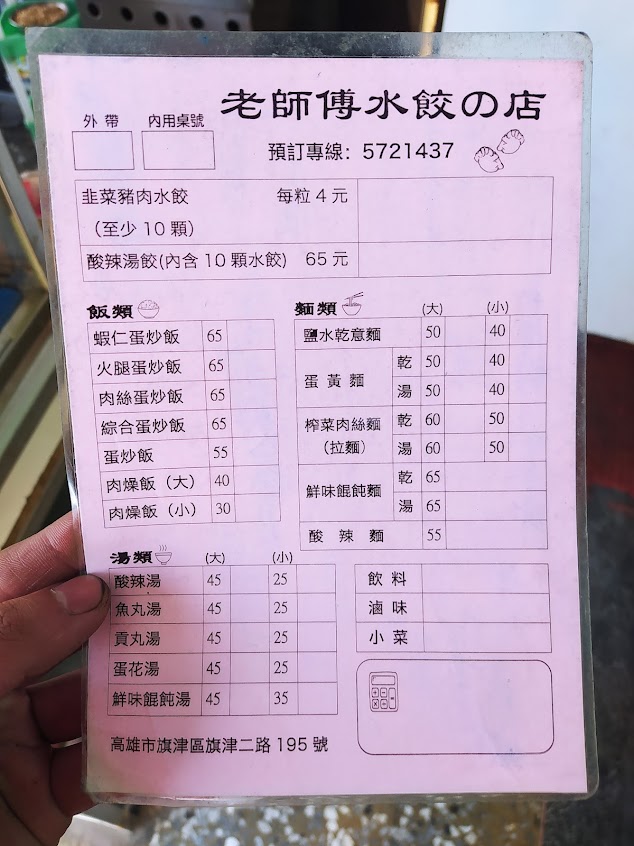 老師傅水餃の店
外帶 內用桌號
預訂專線: 5721437
韭菜豬肉水餃 每粒 4 元
(至少 10 顆)
酸辣湯餃(內含 10 顆水餃) 65 元
飯類
蝦仁蛋炒飯 65
火腿蛋炒飯 65
肉絲蛋炒飯 65
綜合蛋炒飯 65
蛋炒飯 55
肉燥飯(大) 40
肉燥飯(小) 30
麵類 (大) (小)
鹽水乾意麵 50 40
蛋黃麵 乾 50 40
湯 50 40
榨菜肉絲麵 (拉麵) 乾 60 50
湯 60 50
鮮味餛飩麵 乾 65
湯 65
酸辣麵 55
湯類 (大) (小)
酸辣湯 45 25
魚丸湯 45 25
貢丸湯 45 25
蛋花湯 45 25
鮮味餛飩湯 45 35
飲料
滷味
小菜
高雄市旗津區旗津二路 195 號